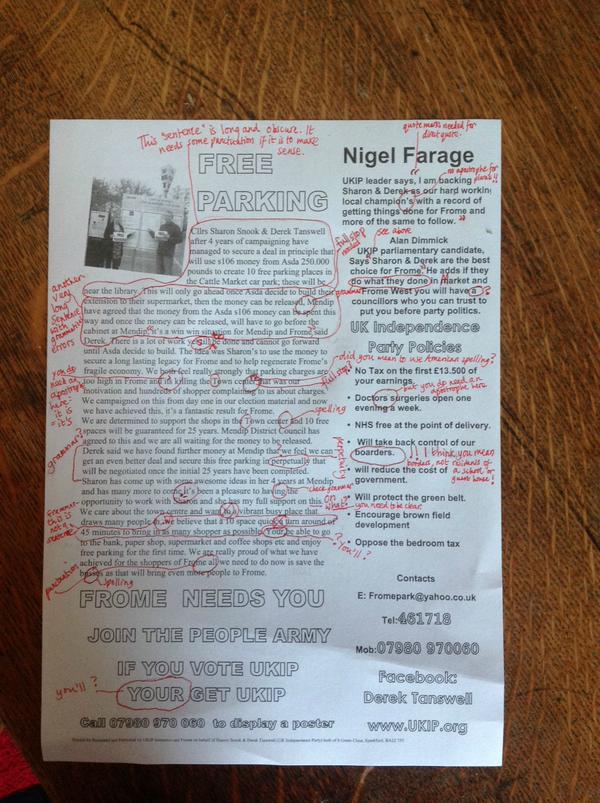 This "sentence" is long and obscure. It
needs some punctuation if it is to make
sense.
FREE
PARKING
Cllrs Sharon Snook & Derek Tanswell
after 4 years of campaigning have
managed to secure a deal in principle that
will use s106 money from Asda 250.000
pounds to create 10 free parking places in
the Cattle Market car park; these will be
near the library. This will only go ahead once Asda decide to build their
extension to their supermarket, then the money can be released. Mendip
have agreed that the money from the Asda s106 money can be spent this
way and once the money can be released, will have to go before the
cabinet at Mendip, it's a win win situation for Mendip and Frome said
Derek. There is a lot of work still be done and cannot go forward
until Asda decide to build. The idea was Sharon's to use the money to
secure a long lasting legacy for Frome and to help regenerate Frome's
fragile economy. We both feel really strongly that parking charges are
too high in Frome and killing the Town centre that was our
motivation and hundreds of shopper complaining to us about charges.
We campaigned on this from day one in our election material and now
we have achieved this, it's a fantastic result for Frome.
We are determined to support the shops in the Town center and 10 free
spaces will be guaranteed for 25 years. Mendip District Council has
agreed to this and we are all waiting for the money to be released.
Derek said we have found further money at Mendip that we feel we can
get an even better deal and secure this free parking in perpetually that
will be negotiated once the initial 25 years have been completed.
Sharon has come up with some awesome ideas in her 4 years at Mendip
and has many more to come. It's been a pleasure to having the
opportunity to work with Sharon and she has my full support on this.
We care about the town centre and want a vibrant busy place that
draws many people in. We believe that a 10 space quick turn around of
45 minutes to bring in as many shopper as possible. Your be able to go
to the bank, paper shop, supermarket and coffee shops etc and enjoy
free parking for the first time. We are really proud of what we have
achieved for the shoppers of Frome all we need to do now is save the
busses as that will bring even more people to Frome.
FROME NEEDS YOU
JOIN THE PEOPLE ARMY
IF YOU VOTE UKIP
YOUR GET UKIP
Call 07980 970 060 to display a poster
another
very
long
sentence
with
errors
you do
need an
apostrophe
here:
it is
= it's
grammar?
Grammar
this is
not a
sentence
punctuation
spelling
you'll ?
full stop
needed
full stop
spelling
perpetuity
check grammar
ON
what?
you need to be clear
? You'll ?
quote marks needed for
direct quote.
Nigel Farage
no apostrophe for
plurals!!
UKIP leader says, I am backing
Sharon & Derek as our hard working
local champion's with a record of
getting things done for Frome and
more of the same to follow.
see above
Alan Dimmick
UKIP parliamentary candidate,
Says Sharon & Derek are the best
choice for Frome. He adds if they
do what they done in Market and
Frome West you will have a
councillors who you can trust to
put you before party politics.
UK Independence
Party Policies
did you mean to use American spelling?
• No Tax on the first £13.500
of your earnings.
but you do need an
apostrophe here
• Doctors surgeries open one
evening a week.
• NHS free at the point of delivery.
• Will take back control of our
boarders.
!! I think you mean
borders, not residents of
a school or
guest house!
• will reduce the cost of
government.
• Will protect the green belt.
• Encourage brown field
development
• Oppose the bedroom tax
Contacts
E: Fromepark@yahoo.co.uk
Tel:461718
Mob:07980 970060
Facebook:
Derek Tanswell
www.UKIP.org